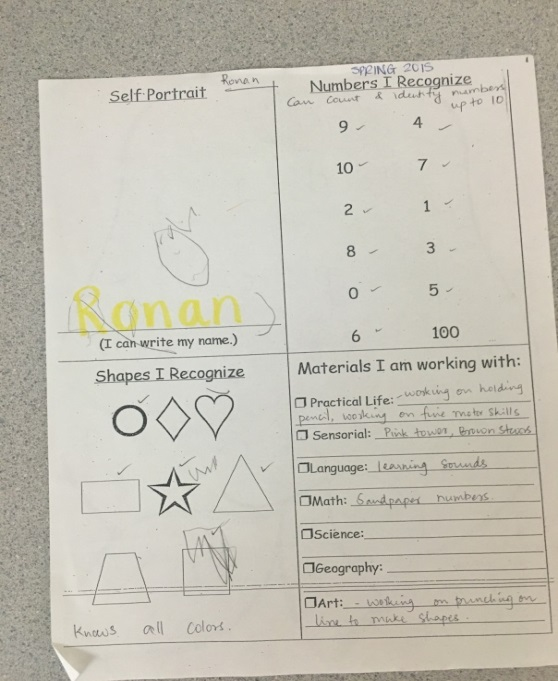 Ronan
Self Portrait
Ronan
(I can write my name.)
SPRING 2015
Numbers I Recognize
Can count & identify numbers
up to 10
9 4
10 7
2 1
8 3
0 5
6 100
Shapes I Recognize
Knows all colors.
Materials I am working with:
Practical Life: - working on holding
pencil, working on fine motor skills
Sensorial: Pink tower, Brown Stairs
Language: learning Sounds
Math: Sandpaper numbers.
Science:
Geography:
Art: - working on punching on
line to make shapes.